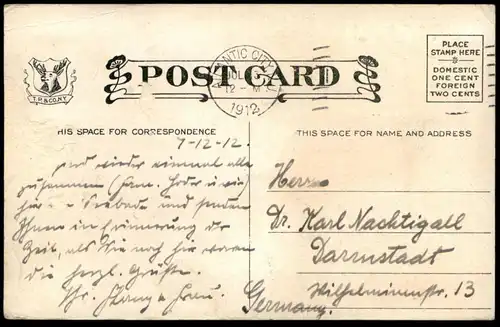 PLACE
STAMP HERE
DOMESTIC
ONE CENT
FOREIGN
TWO CENTS
ANTIC CITY
JUL
12 - M
1912
T.P.& CO.N.Y.
POST CARD
HIS SPACE FOR CORRESPONDENCE
THIS SPACE FOR NAME AND ADDRESS
7-12-12.
wieder einmal alle
zusammen
hier und senden
Ihnen in Erinnerung der
Zeit, als Sie noch hier waren
die herzl. Grüße.
Frau.
Herrn
Dr. Karl Nachtigall
Darmstadt
Wilhelminenstr. 13
Germany.